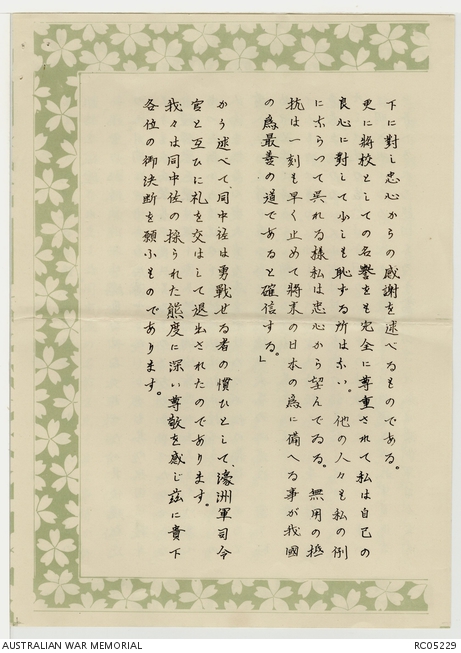 下に對し忠心からの感謝を述べるものである。
更に將校としての名譽をも完全に尊重されて私は自己の
良心に對して少しも恥ずる所はない。他の人々も私の例
にならつて呉れる樣私は忠心から望んでゐる。無用の抵
抗は一刻も早く止めて將来の日本の為に備へる事が我國
の為最善の道であると確信する。」
から述べて、同中佐は勇戰せる者の慣ひとして、濠洲軍司令
官と互ひに礼を交はして退出されたのであります。
我々は同中佐の採られた態度に深い尊敬を感じ茲に貴下
各位の御決断を願ふものであります。
AUSTRALIAN WAR MEMORIAL
RC05229